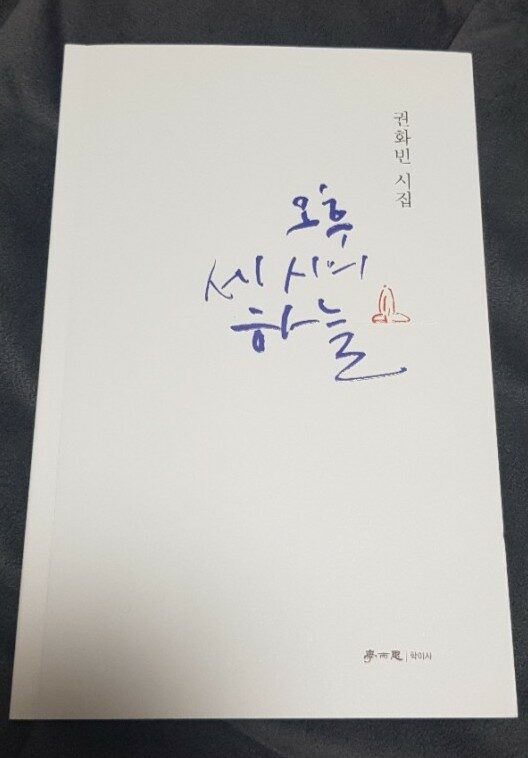 권화빈 시집
오후
세 시의
하늘
學而思 | 학이사